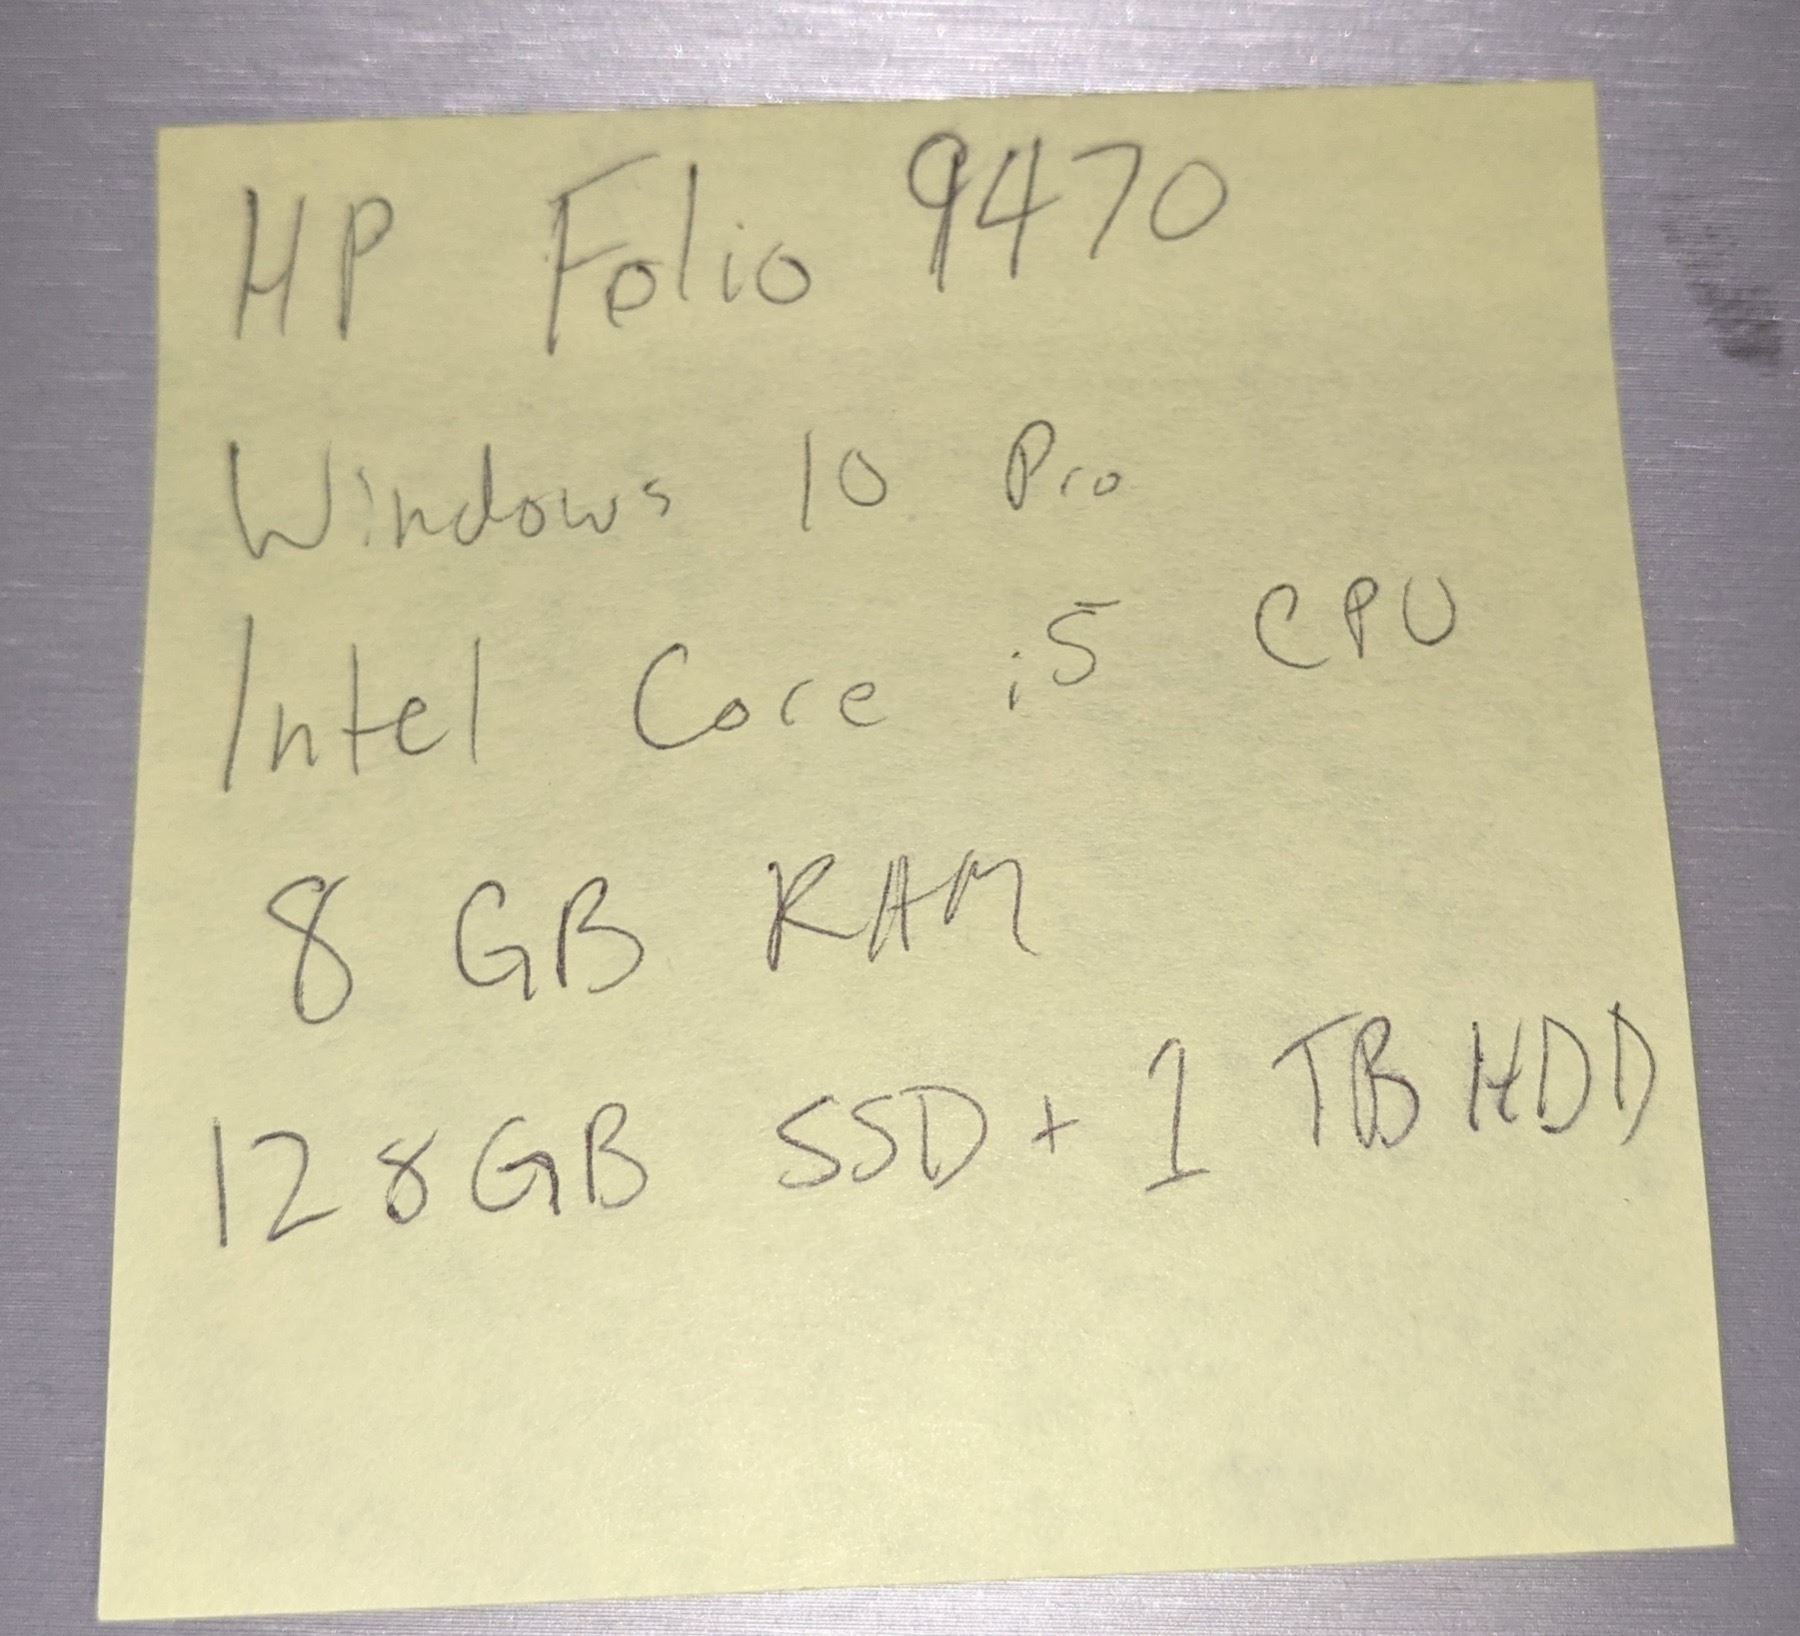 HP Folio 9470
Windows 10 Pro
Intel Core i5 CPU
8 GB RAM
128GB SSD + 1 TB HDD